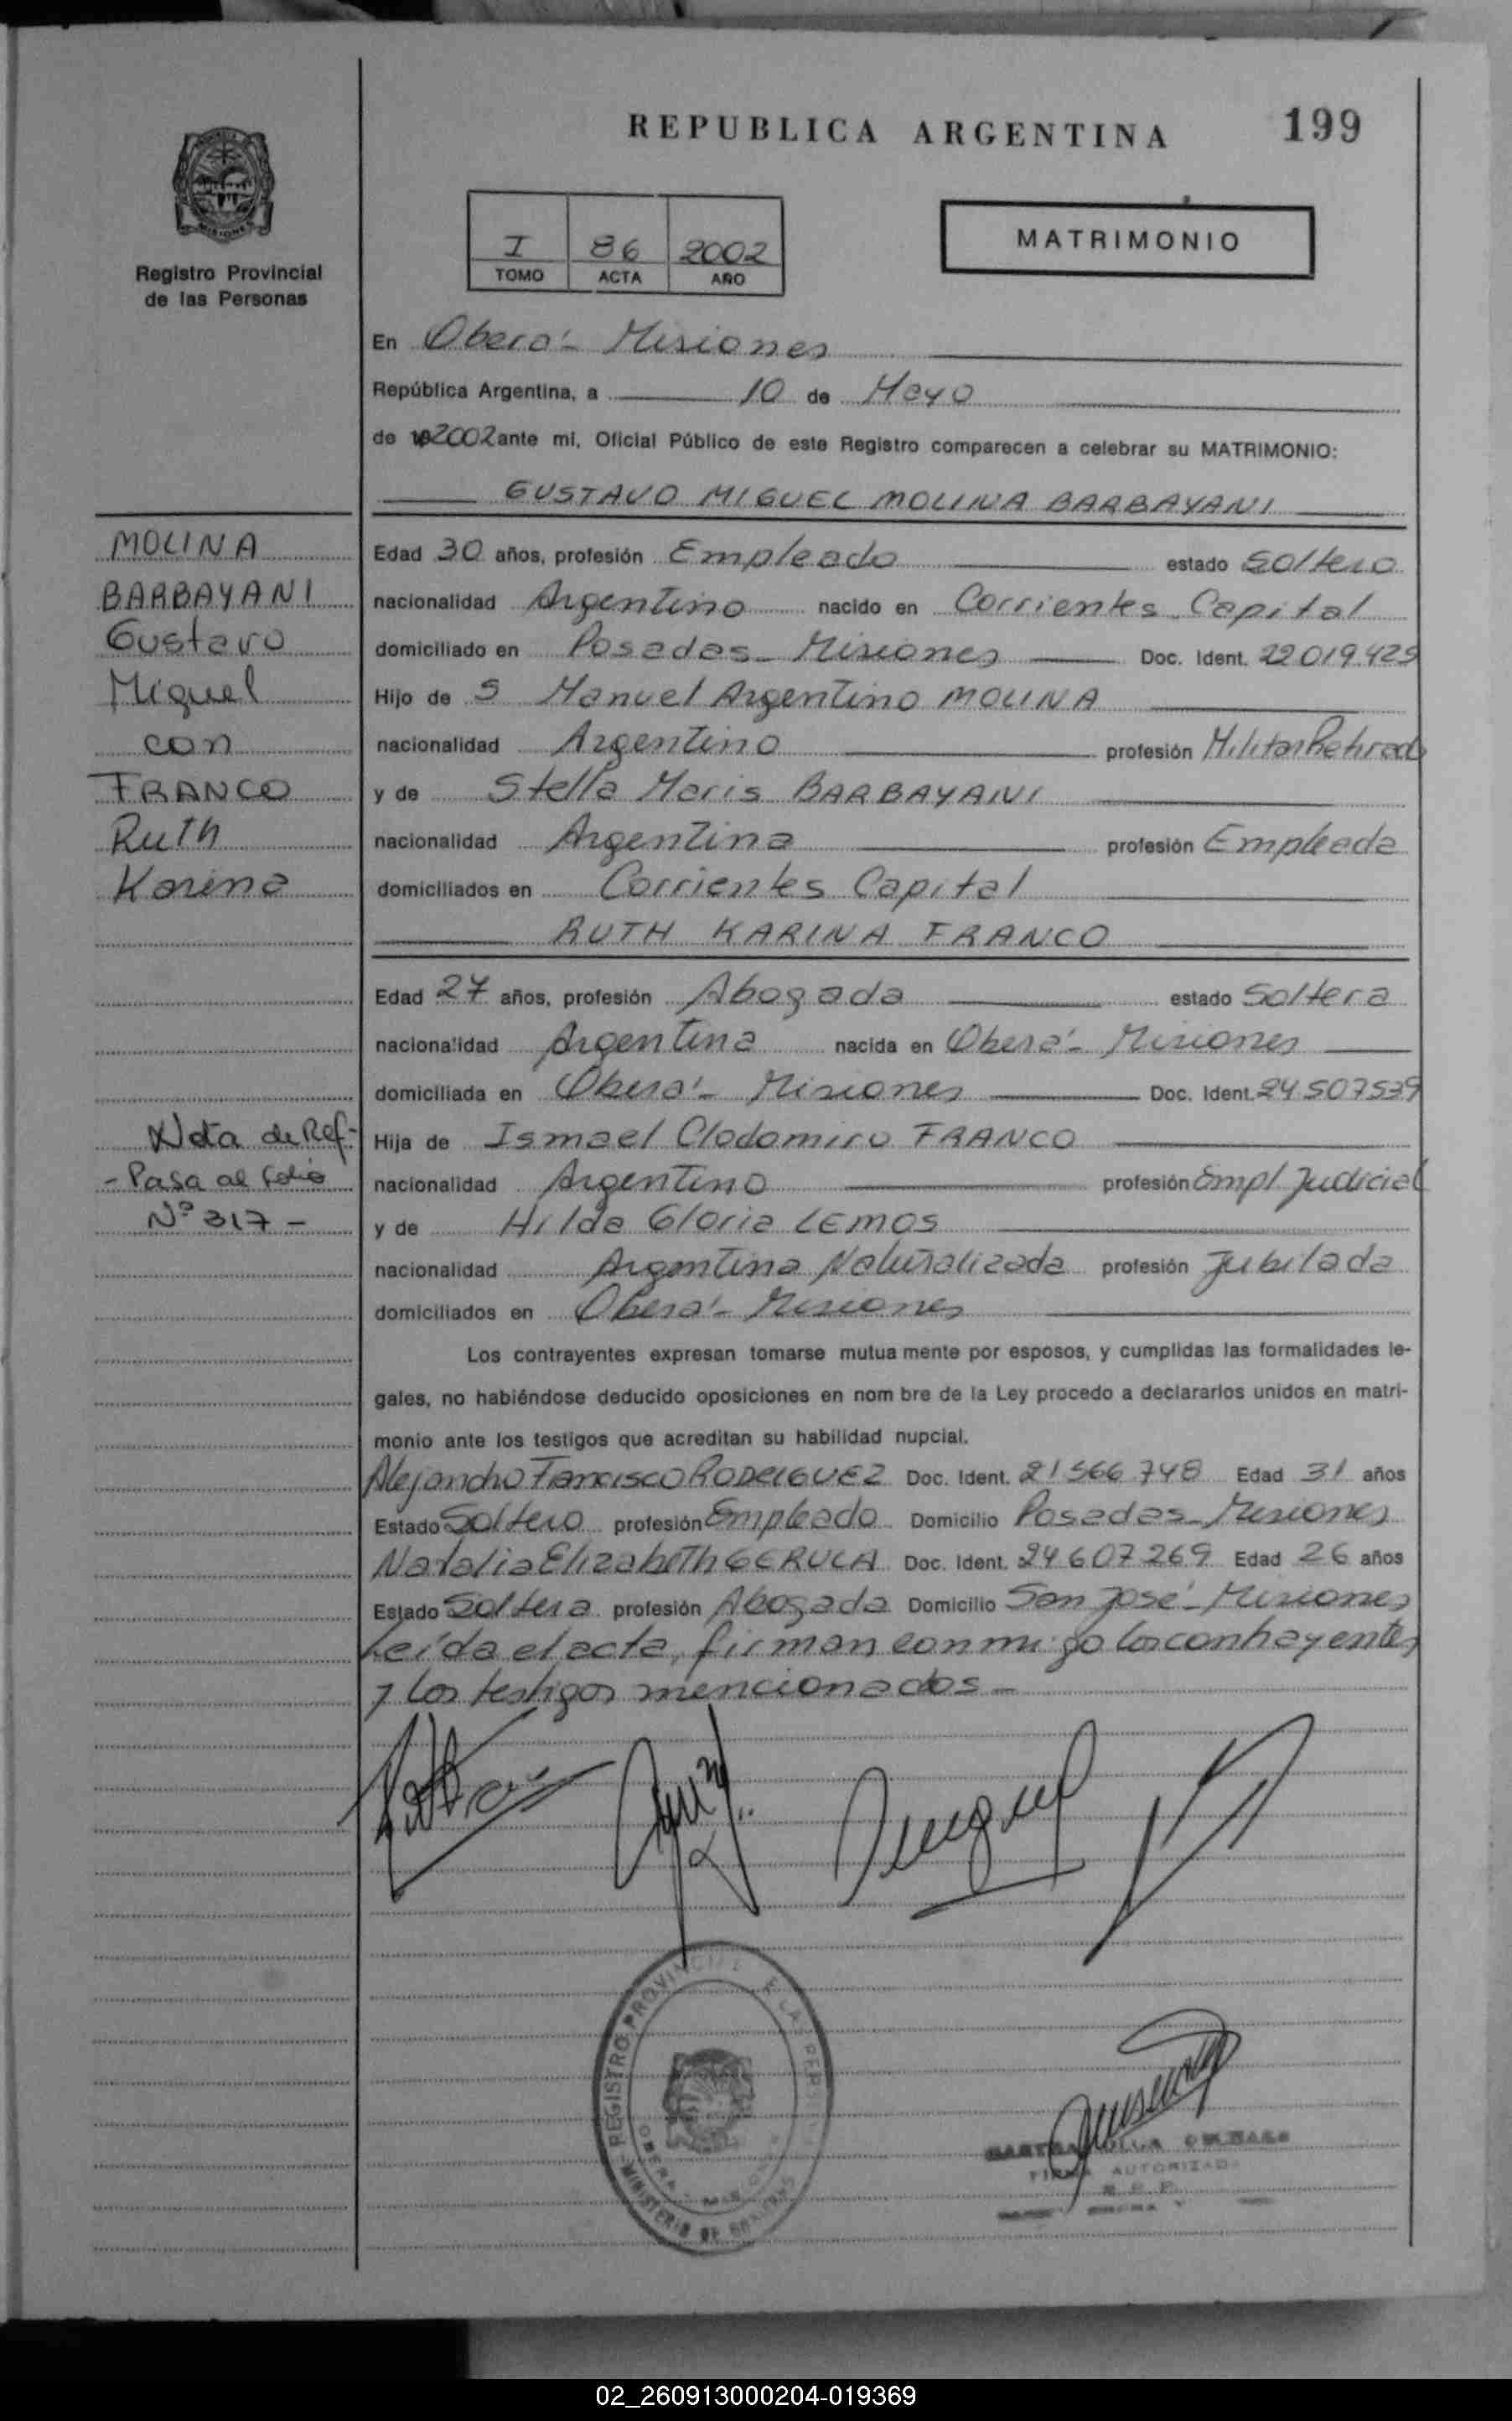 REPUBLICA ARGENTINA 199
MISIONES
Registro Provincial
de las Personas
I 86 2002
TOMO ACTA AÑO
MATRIMONIO
En Oberá - Misiones
República Argentina, a 10 de Mayo
de 2002 ante mi, Oficial Público de este Registro comparecen a celebrar su MATRIMONIO:
GUSTAVO MIGUEL MOLINA BARBAYANI
MOLINA
BARBAYANI
Gustavo
Miguel
con
FRANCO
Ruth
Karina
Edad 30 años, profesión Empleado estado Soltero
nacionalidad Argentino nacido en Corrientes Capital
domiciliado en Posadas - Misiones Doc. Ident. 22019.429
Hijo de S Manuel Argentino MOLINA
nacionalidad Argentino profesión Militar Retirado
y de Stella Maris BARBAYANI
nacionalidad Argentina profesión Empleada
domiciliados en Corrientes Capital
RUTH KARINA FRANCO
Edad 27 años, profesión Abogada estado Soltera
nacionalidad Argentina nacida en Oberá - Misiones
domiciliada en Oberá - Misiones Doc. Ident. 24507539
Nota de Ref.-
- Pasa al folio
Nº 317 -
Hija de Ismael Clodomiro FRANCO
nacionalidad Argentino profesión Empl. Judicial
y de Hilda Gloria LEMOS
nacionalidad Argentina Naturalizada profesión Jubilada
domiciliados en Oberá - Misiones
Los contrayentes expresan tomarse mutua mente por esposos, y cumplidas las formalidades le-
gales, no habiéndose deducido oposiciones en nom bre de la Ley procedo a declararlos unidos en matri-
monio ante los testigos que acreditan su habilidad nupcial.
Alejandro Francisco RODRIGUEZ Doc. Ident. 21566.748 Edad 31 años
Estado Soltero profesión Empleado Domicilio Posadas - Misiones
Natalia Elizabeth GERULA Doc. Ident. 24607269 Edad 26 años
Estado Soltera profesión Abogada Domicilio San José - Misiones
Leída el acta, firman conmigo los contrayentes
y los testigos mencionados -
REGISTRO PROVINCIAL DE LAS PERSONAS
OBERA - MISIONES
MINISTERIO DE GOBIERNO
OLGA
FIRMA AUTORIZADA
R. P. P.
02_260913000204-019369